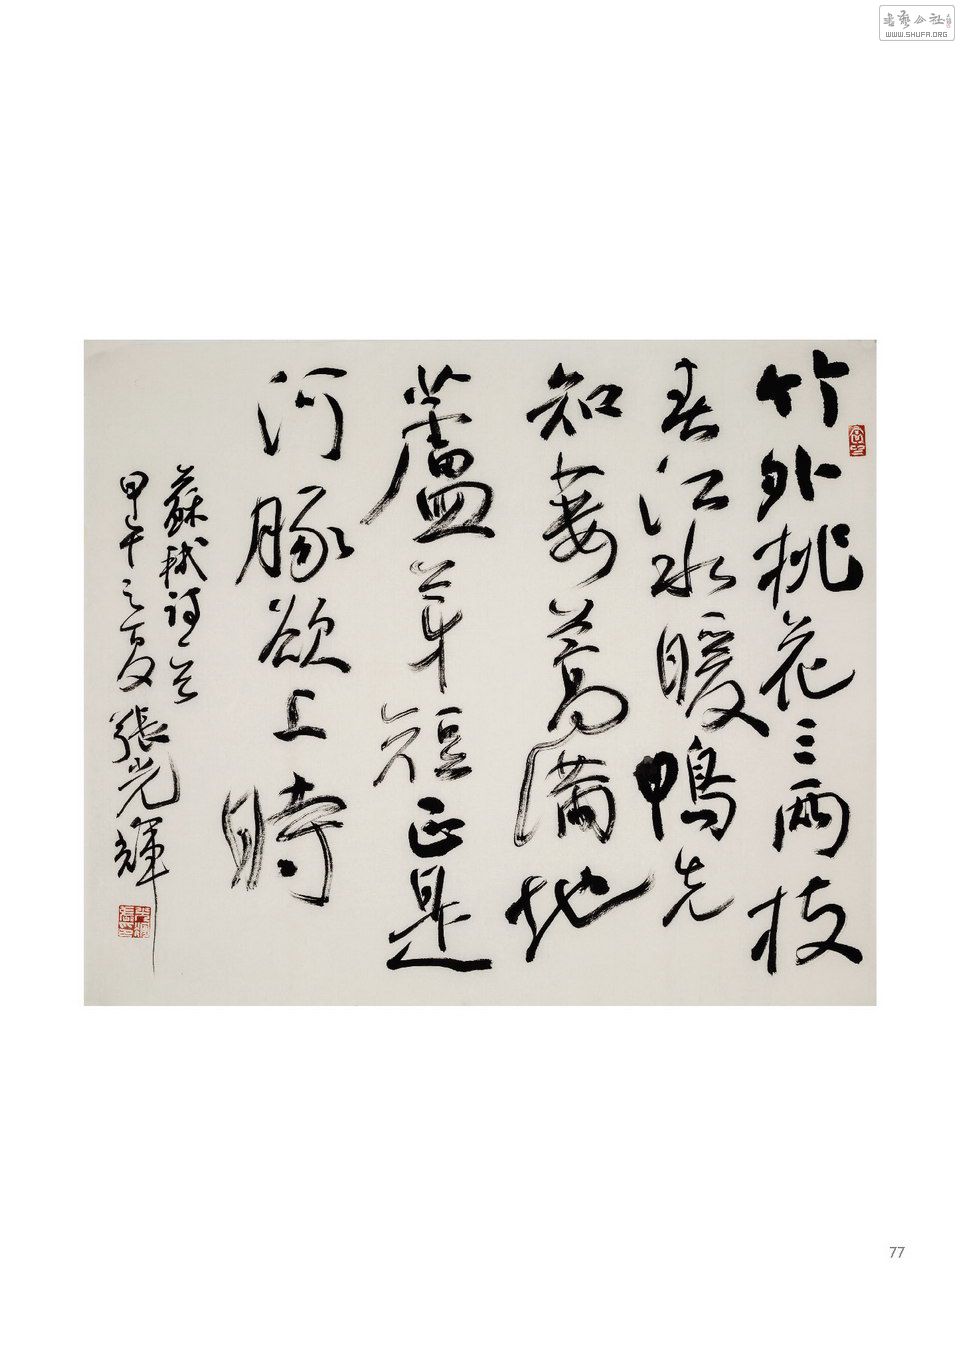 書藝公社
WWW.SHUFA.ORG
竹外桃花三兩枝
春江水暖鴨先
知蔞蒿滿地
蘆芽短正是
河豚欲上時
蘇軾詩一首
甲午之夏張光輝
77